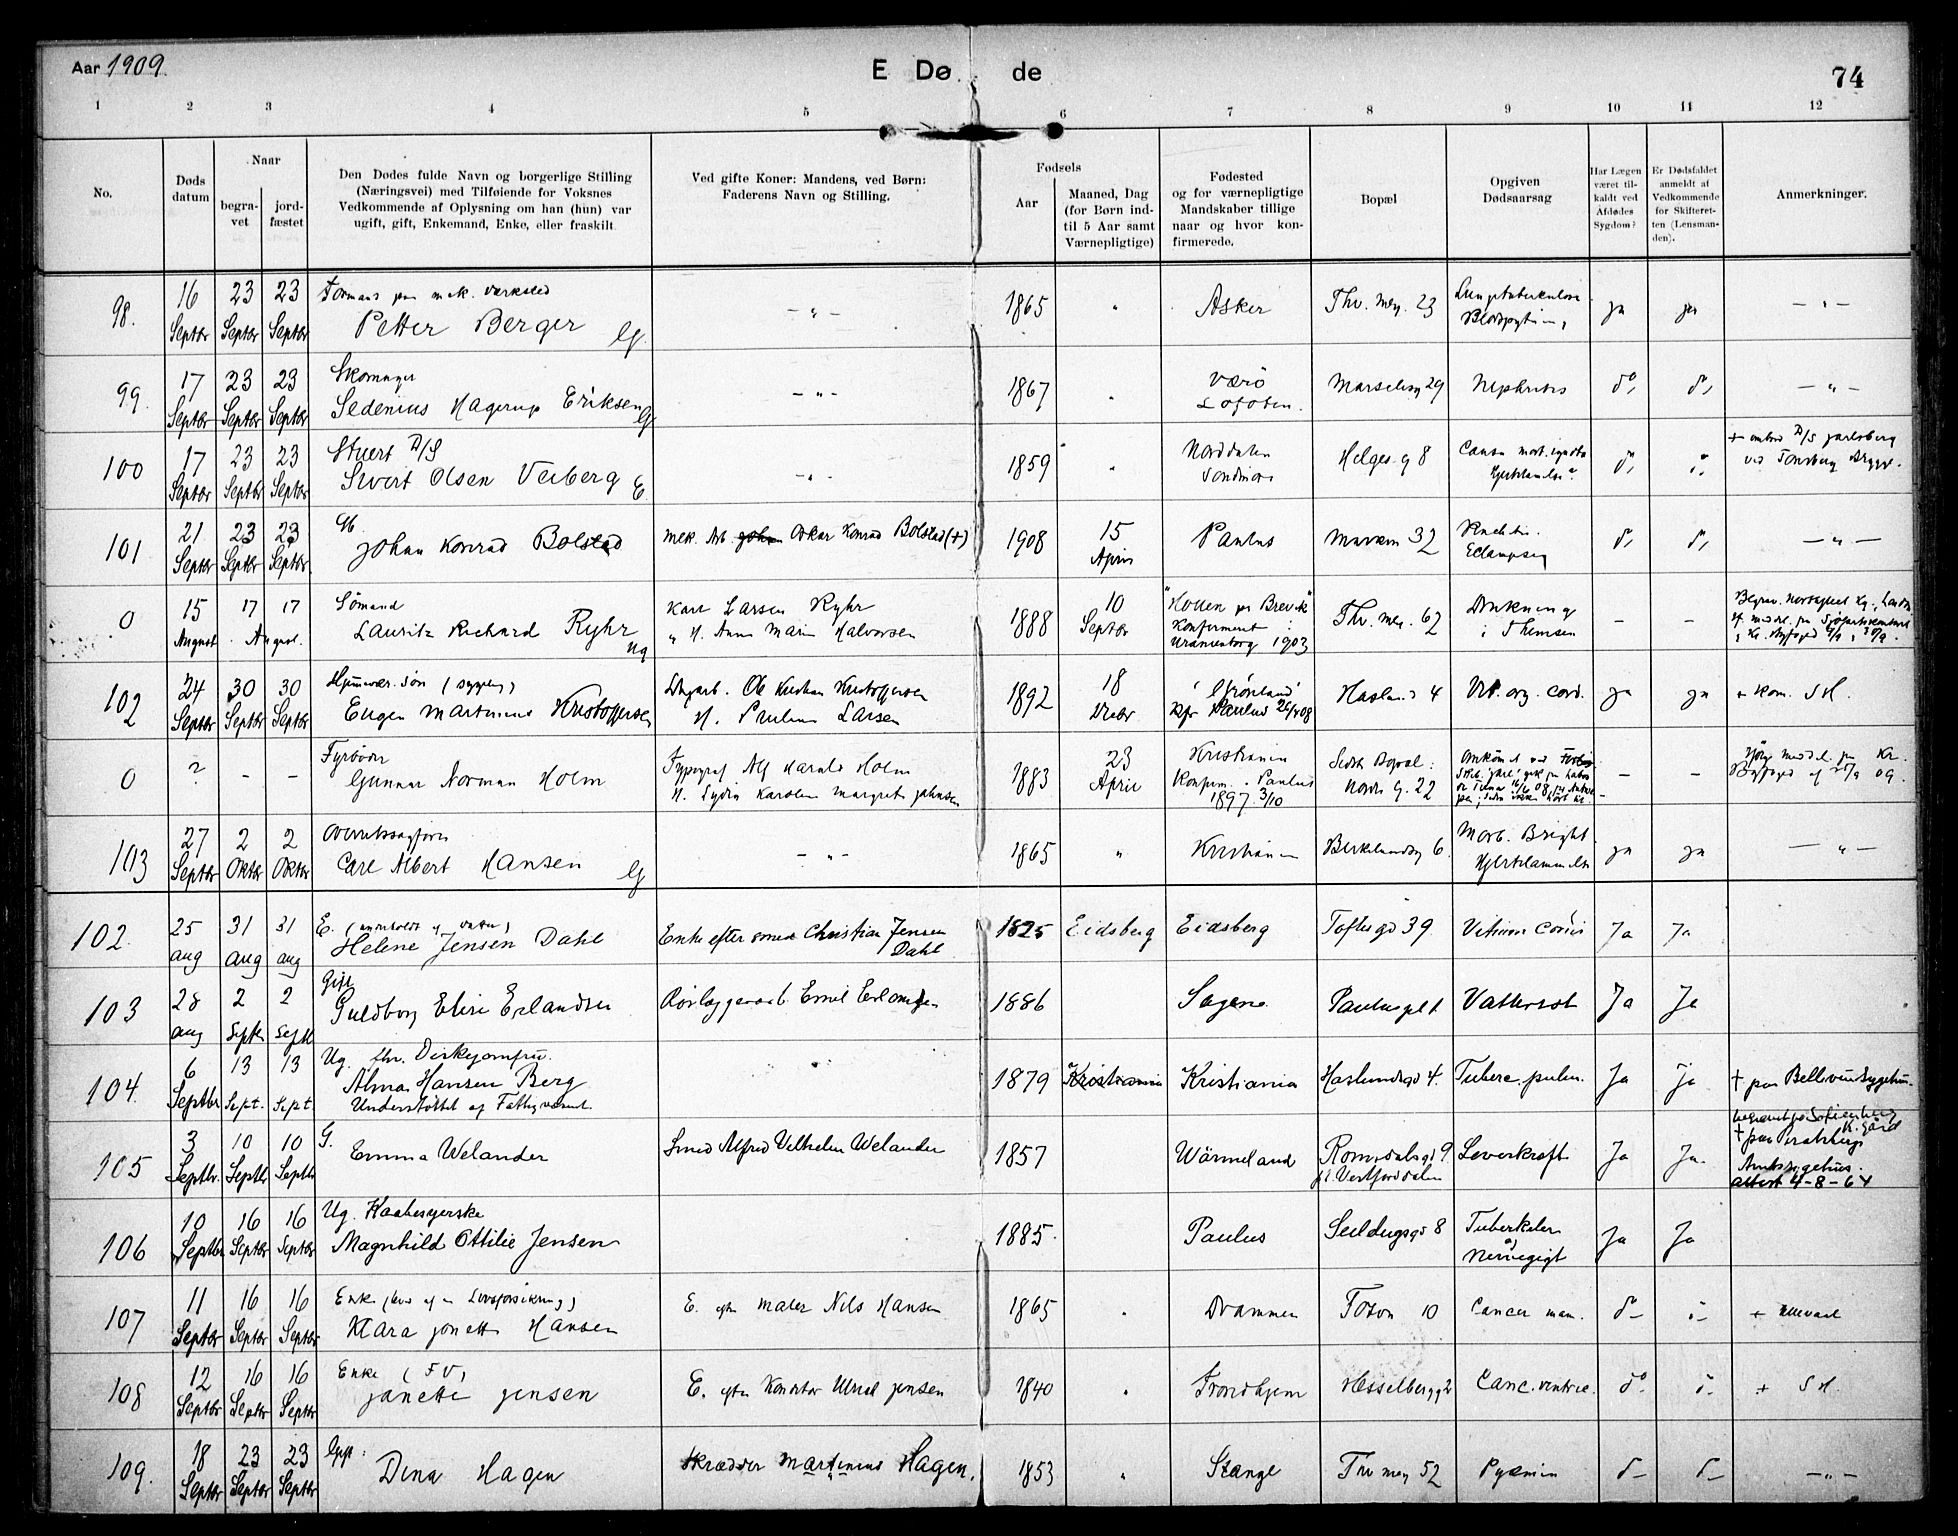 Aar 1909.
E Dø de
74
1 2 3 4 5 6 7 8 9 10 11 12
No.
Døds datum
Naar
begra-vet
jord-fæstet
Den Dødes fulde Navn og borgerlige Stilling
(Næringsvei) med Tilføiende for Voksnes
Vedkommende af Oplysning om han (hun) var
ugift, gift, Enkemand, Enke, eller fraskilt.
Ved gifte Koner: Mandens, ved Børn:
Faderens Navn og Stilling.
Fødsels
Aar
Maaned, Dag
(for Børn ind-
til 5 Aar samt
Værnepligtige)
Fødested
og for værnepligtige
Mandskaber tillige
naar og hvor kon-
firmerede.
Bopæl
Opgiven
Dødsaarsag
Har Lægen
været til-
kaldt ved
Afdødes
Sygdom?
Er Dødsfaldet
anmeldt af
Vedkommende
for Skifteret-
ten (Lensman-
den).
Anmerkninger.
98. 16 Septbr 23 Septbr 23 Septbr
Formand paa mek. værksted
Petter Berger G.
— „ —
1865 „ Asker Thv. mey. 23 Lungetuberkulose
ja ja — „ —
99. 17 Septbr 23 Septbr 23 Septbr
Skomager
Sedenius Hagerup Eriksen G
— „ —
1867 „ Værö
Lofoten. Marselisg 29 Nephritis do, do, — „ —
100 17 Septbr 23 Septbr 23 Septbr
Stuert D/S
Sivert Olsen Veiberg G.
— „ —
1859 „ Norddalen
Söndmör Helges. g 8
+ ombord D/S Jarlsberg
ved Tønsberg Brygge.
101 21 Septbr 23 Septbr 23 Septbr
Gb.
Johan Konrad Bolstad
Mek. Arb. Oskar Konrad Bolstad (+)
1908 15 April Paulus Markvn 32
Eclampsy do, do, — „ —
0 15 August 17 17 August.
Sömand
Lauritz Richard Ryhr ug
Karl Larsen Ryhr
„ H. Anna Marie Halvorsen
1888 10 Septbr "Hollen pr Brevik"
Konfirmert i
Uranienborg 1903 Thv. mey. 62 Drukning
i Themsen — —
102 24 Septbr 30 Septbr 30 Septbr
Hjemmevær. sön
Eugen Martinius Kristoffersen
Ole Kristian Kristoffersen
H. Pauline Larsen
1892 18 'Grönland'
Kfr Paulus Haslund 4 Vit. org. cord. ja ja + Kom. SH.
0 ? — —
Fyrböder
Gunnar Norman Holm
Typograf Alf Harald Holm
H. Lydia Karoline Margrete Johnsen
1883 23 April Kristiania
Konfirm. i Paulus
1897 3/10 Sidste Bopæl:
Nordr. g. 22
— —
103 27 Septbr 2 Oktbr 2 Oktbr
Overretssagförer
Carl Albert Hansen G
— „ —
1865 „ Kristiania Birkelundsg 6. Morb. Bright
Hjertelammelse ja ja — „ —
102. 25 aug 31 aug 31 aug
E.
Helene Jensen Dahl
Enke efter smed Christian Jensen
Dahl
1825 Eidsberg Eidsberg Toftesgd 39 Vitium Cordis Ja Ja
103 28 aug 2 Septb 2 Septb
Gift
Guldborg Elise Erlandsen
Rörlæggerarb. Emil Erlandsen
1886 Sagene Pauluspl 1 Vattersot Ja Ja
104. 6 Septbr 13 Sept. 13 Sept.
Ug. fhv. Diskejomfru.
Alma Hansen Berg
Understöttet af Fattigvæsnet.
1879 Kristiania Kristiania Haslundsgd 4. Tuberc. pulm. Ja Ja † paa Bellevue sygehus.
105 3 Septbr. 10 Septbr 10 Septbr
G.
Emma Welander
Smed Alfred Vilhelm Welander
1857 Wärmeland Romsdalsgd 9
Leverkræft Ja Ja.
begravet paa Sofienberg
K.gård
Amtssygehus.
attest 4-8-64
106 10 Septbr 16 Septbr 16 Septbr
Ug. Kaabesyerske
Magnhild Ottilie Jensen
1885. Paulus Seildugsgd 8 Tuberkeler
og
Nervegigt Ja Ja
107 11 Septbr 16 Septbr 16 Septbr
Enke (lever af en Livsforsikring)
Klara Jonette Hansen
E. efter Maler Nils Hansen
1865 „ Drammen Toson 10 Cancer mam. do — + Ullevaal
108 12 Septbr 16 Septbr 16 Septbr
Enke (FV)
Janette Jensen
E. efter Kontorbud Jensen
1840 „ Trondhjem Hesselbergg 2 Canc. ventric. do. + SH.
109. 18 Septbr 23 Septbr 23 Septbr
Gift:
Dina Hagen
Skrædder Martinius Hagen.
1853 „ Stange Thv mey 52 Pyæmi — „ —